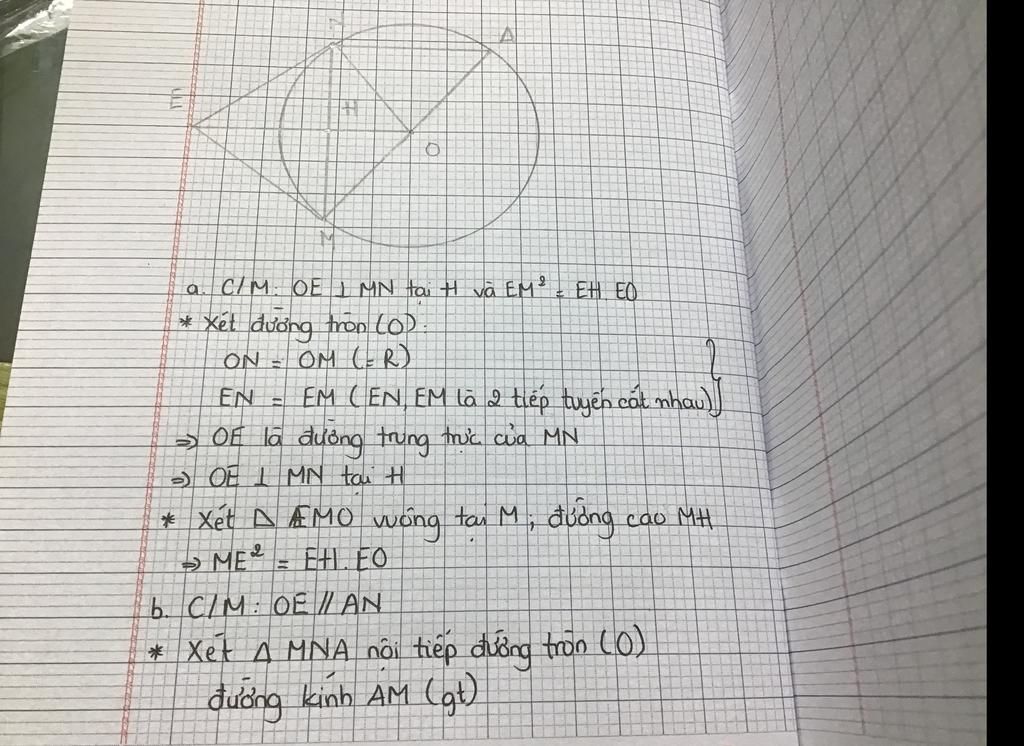 N
A
E
H
O
M
a. C/M: OE ⊥ MN tại H và EM² = EH. EO
* Xét đường tròn (O):
ON = OM (= R)
EN = EM (EN, EM là 2 tiếp tuyến cắt nhau)}
⇒ OE là đường trung trực của MN
⇒ OE ⊥ MN tại H
* Xét Δ EMO vuông tại M; đường cao MH
⇒ ME² = EH. EO
b. C/M: OE // AN
* Xét Δ MNA nội tiếp đường tròn (O)
đường kính AM (gt)